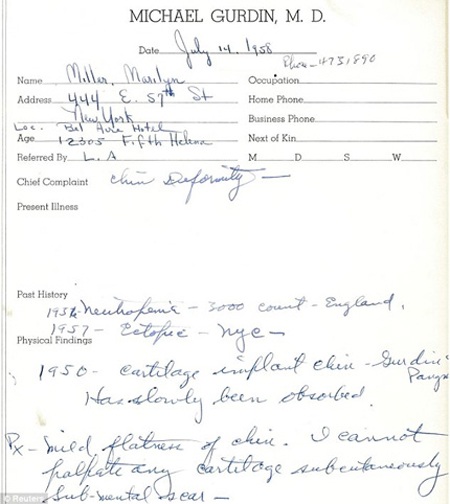 MICHAEL GURDIN, M. D.
Date July 14, 1958
Phone-4731890
Name Miller, Marilyn Occupation
Address 444 E. 57th St Home Phone
New York Business Phone
Loc. Bel Aire Hotel
Age 12305 Fifth Helena Next of Kin
Referred By L. A M D S W
Chief Complaint Chin Deformity —
Present Illness
Past History
1956 Neutropenia - 3000 count - England.
1957 - Ectopic - NYC -
Physical Findings
1950 - cartilage implant chin - Gurdin
Has slowly been absorbed.
Px - mild flatness of chin. I cannot
palpate any cartilage subcutaneously
Sub-mental scar -
© Reuters